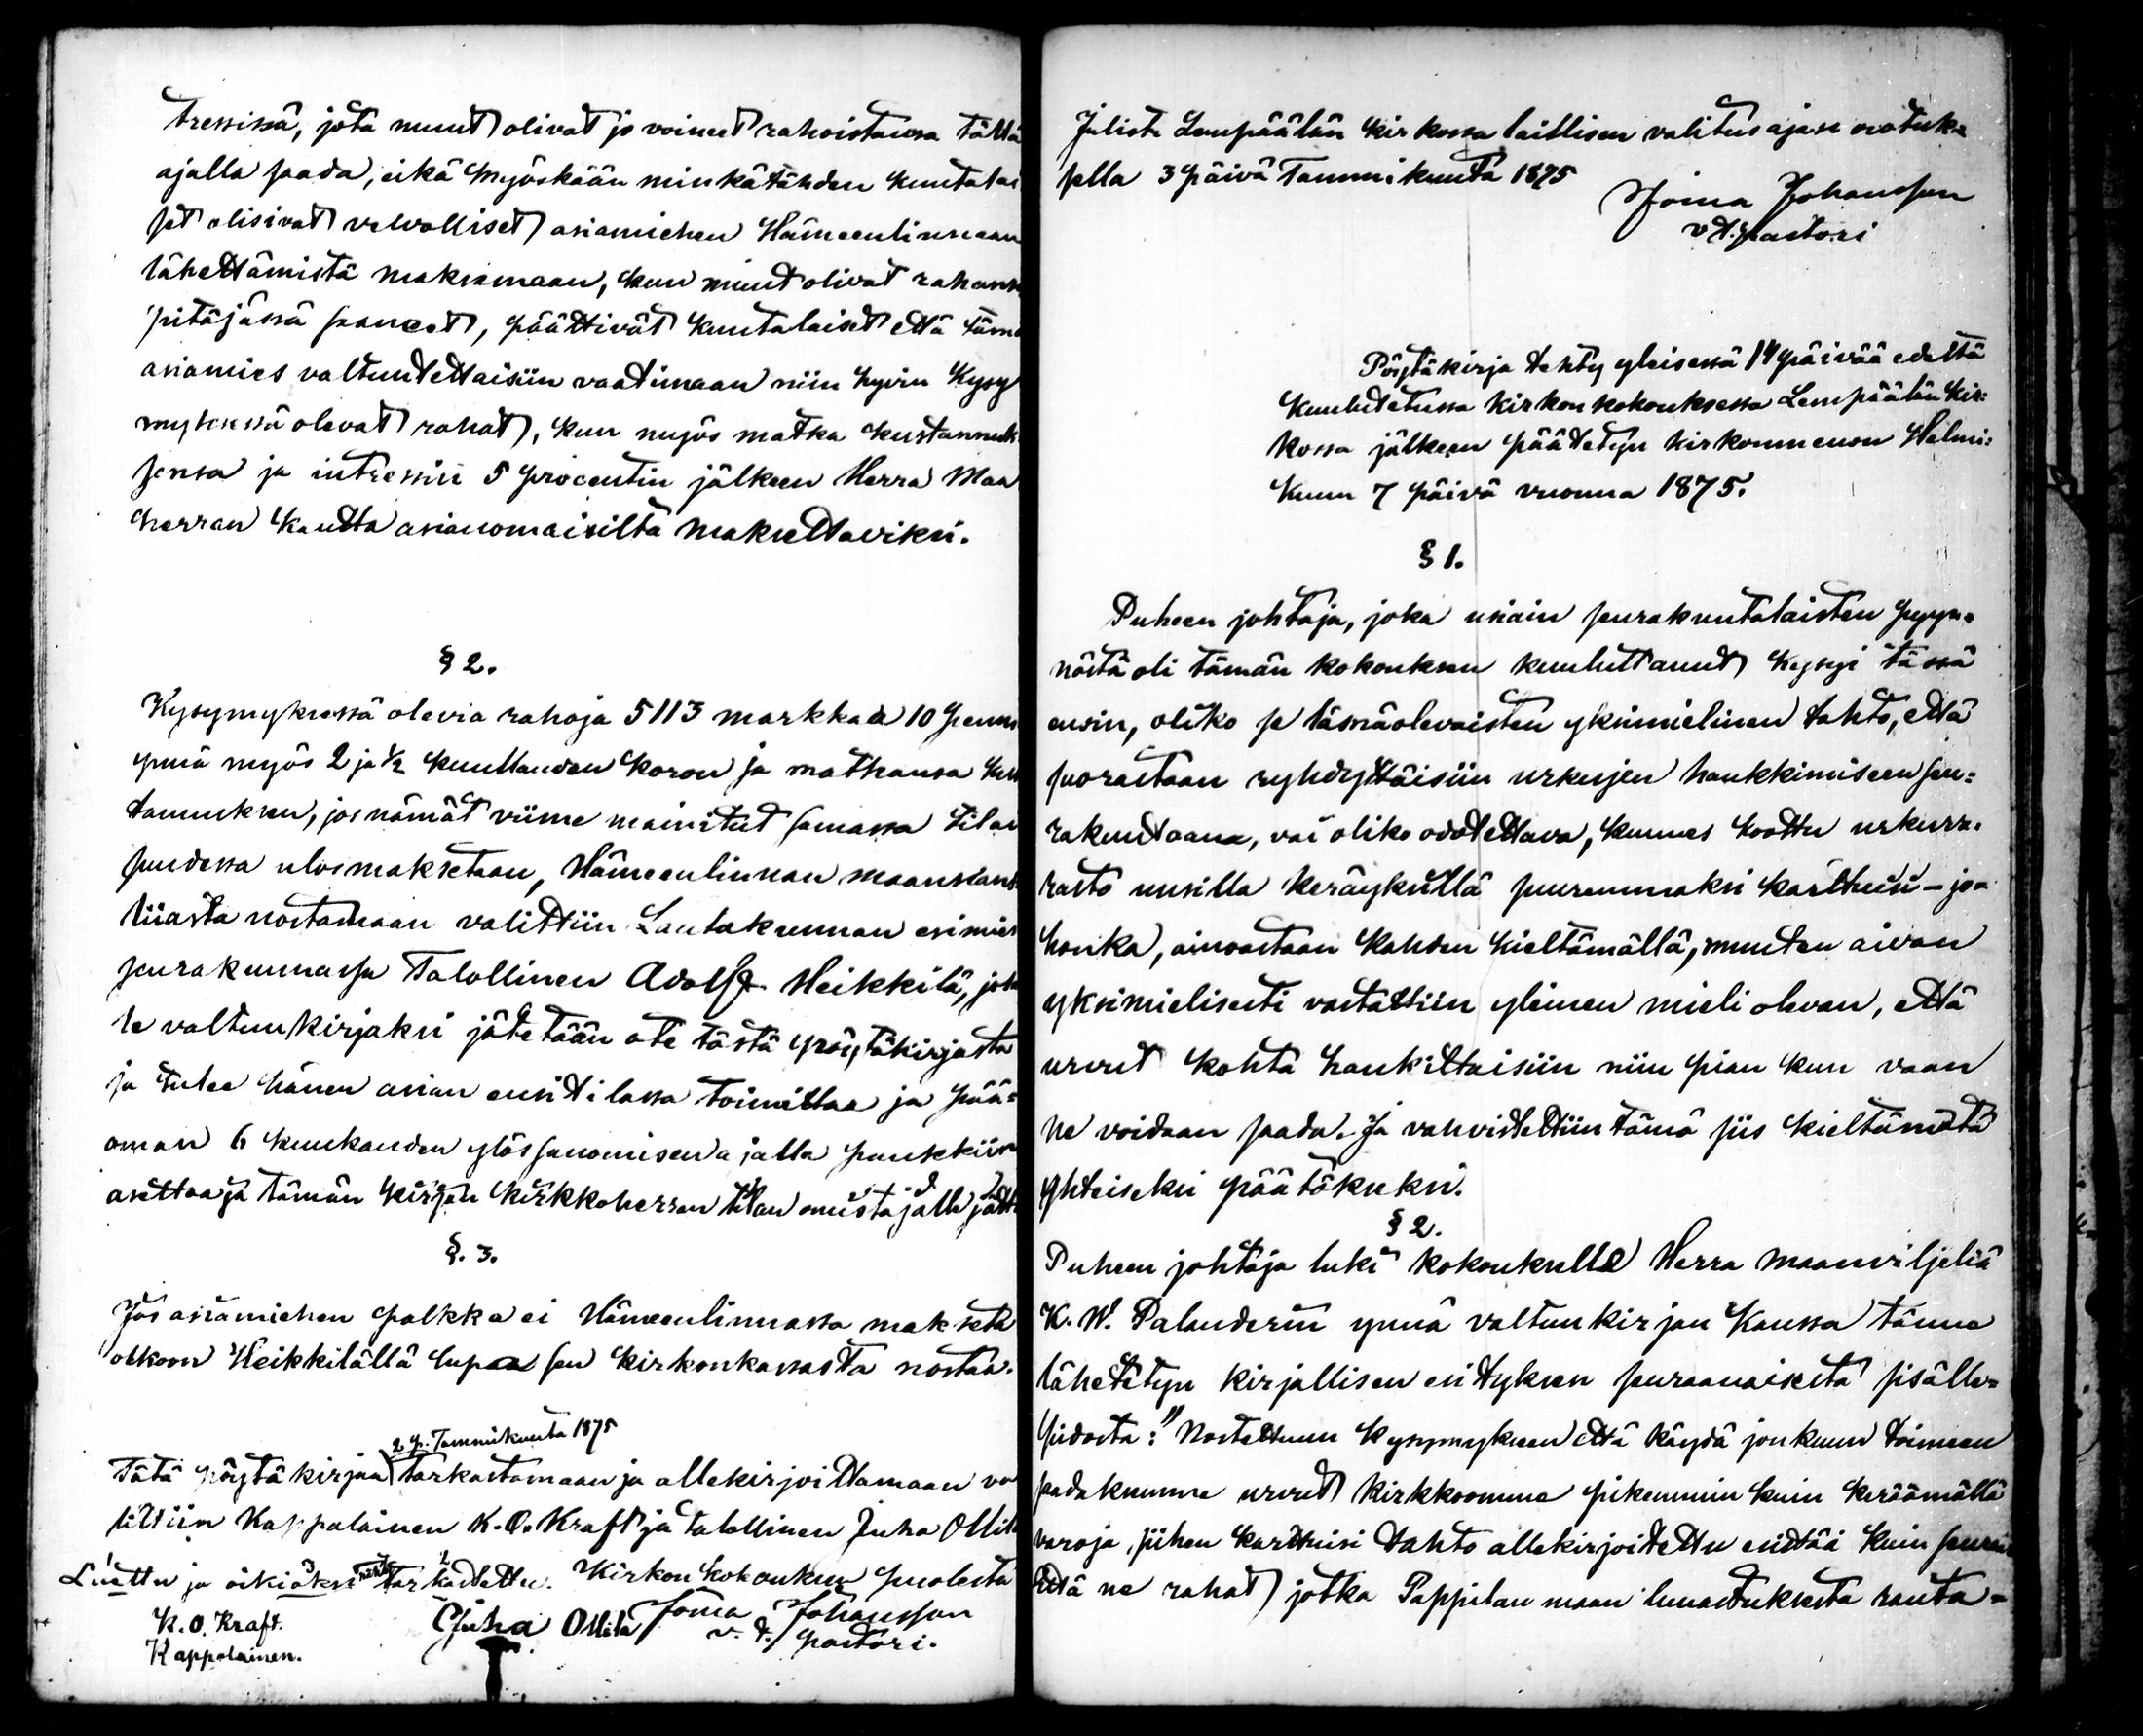 tressissä, jota muut olivat jo voineet rahoistansa tällä
ajalla saada, eikä myöskään minkätähden kuntalai
set olisivat velvolliset asiamiehen Hämeenlinnaan
lähettämistä maksamaan, kun muut olivat rahansa
pitäjässä saaneet, päättivät kuntalaiset että tämä
asiamies valtuutettaisiin vaatimaan niin hyvin kysy
myksessä olevat rahat, kun myös matka kustannuk
sensa ja intressin 5 procentin jälkeen Herra Maa
herran kautta asianomaisilta maksettaviksi.
§ 2.
Kysymyksessä olevia rahoja 5113 markkaa 10 penni
ynnä myös 2 ja ½ kuukauden koron ja matkansa kus
tannuksen, jos nämät viime mainitut samassa tilai
suudessa ulosmaksetaan, Hämeenlinnan maanrans
liiasta nostamaan valittiin Lautakunnan esimies
seurakunnassa Talollinen Adolf Heikkilä, jol
le valtuukirjaksi jätetään ote tästä pöytäkirjasta
ja tulee hänen asian ensi tilassa toimittaa ja pää=
oman 6 kuukauden ylössanomisen ajalla pankkiin
asettaa ja tämän kirjan kirkkoherran tilan omistajalle jätt
§. 3.
Jos asiamiehen palkka ei Hämeenlinnassa makseta
olkoon Heikkilällä lupa sen kirkonkassasta nostaa.
2 p. Tammikuuta 1875
Tätä pöytäkirjaa tarkastamaan ja allekirjoittamaan va
littiin Kappalainen K. O. Kraft ja talollinen Juha Ollila
Luettu ja oikiaksi tarkastettu. Kirkon kokouksen puolesta
K. O. Kraft. Juha Ollila Joma Johansson
Kappalainen. v. t. pastori.
Julistr Lempäälän kirkossa laillisen valitusajan osotuk=
sella 3 päivä Tammikuuta 1875
Joma Johansson
v.t. pastori
Pöytäkirja tehty yleisessä 14 päivää edeltä
kuulutetussa kirkon kokouksessa Lempäälän kir=
kossa jälkeen päätetyn kirkonmenon Helmi=
kuun 7 päivä vuonna 1875.
§ 1.
Puheen johtaja, joka usiain seurakuntalaisten pyyn=
nöstä oli tämän kokouksen kuuluttanut kysyi tässä
ensin, oliko se läsnäolevaisten yksimielinen tahto, että
suorastaan ryhdyttäisiin urkujen hankkimiseen seu=
rakuntaana, vai oliko odotettava, kunnes koottu urkura=
rasto uusilla keräyksillä suuremmaksi karttuisi – jo=
honka, ainoastaan kahden kieltämällä, muuten aivan
yksimielisesti vastattiin yleinen mieli olevan, että
urvut kohta hankittaisiin niin pian kun vaan
ne voidaan saada. Ja vahvistettiin tämä siis kieltämätä
yhteiseksi päätökseksi.
§ 2.
Puheen johtaja luki kokoukselle Herra maanviljeliä
K. W. Palanderin ynnä valtuukirjan kanssa tänne
lähetetyn kirjallisen esityksen seuraavaisesta sisälle=
pidosta: "Nostettuun kysymykseen että käydä jonkuun toimeen
saadaksemme urvut kirkkoomme pikemmin kuin keräämällä
varoja siihen karttuisi tahto allekirjoitettu esittää kuin seuraa
Että ne rahat jotka Pappilan maan lunastuksesta rauta=